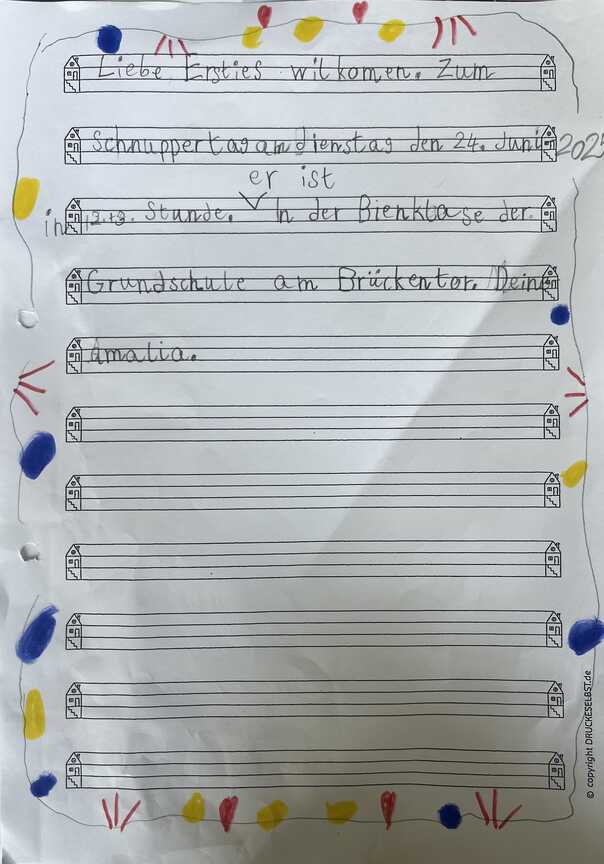 Liebe Ersties wilkomen. Zum
Schnuppertag am dienstag den 24. Juni 2025
er ist
in 12.+3. Stunde. In der Bienklase der
Grundschule am Brückentor. Deine
Amalia.
© copyright DRUCKESELBST.de